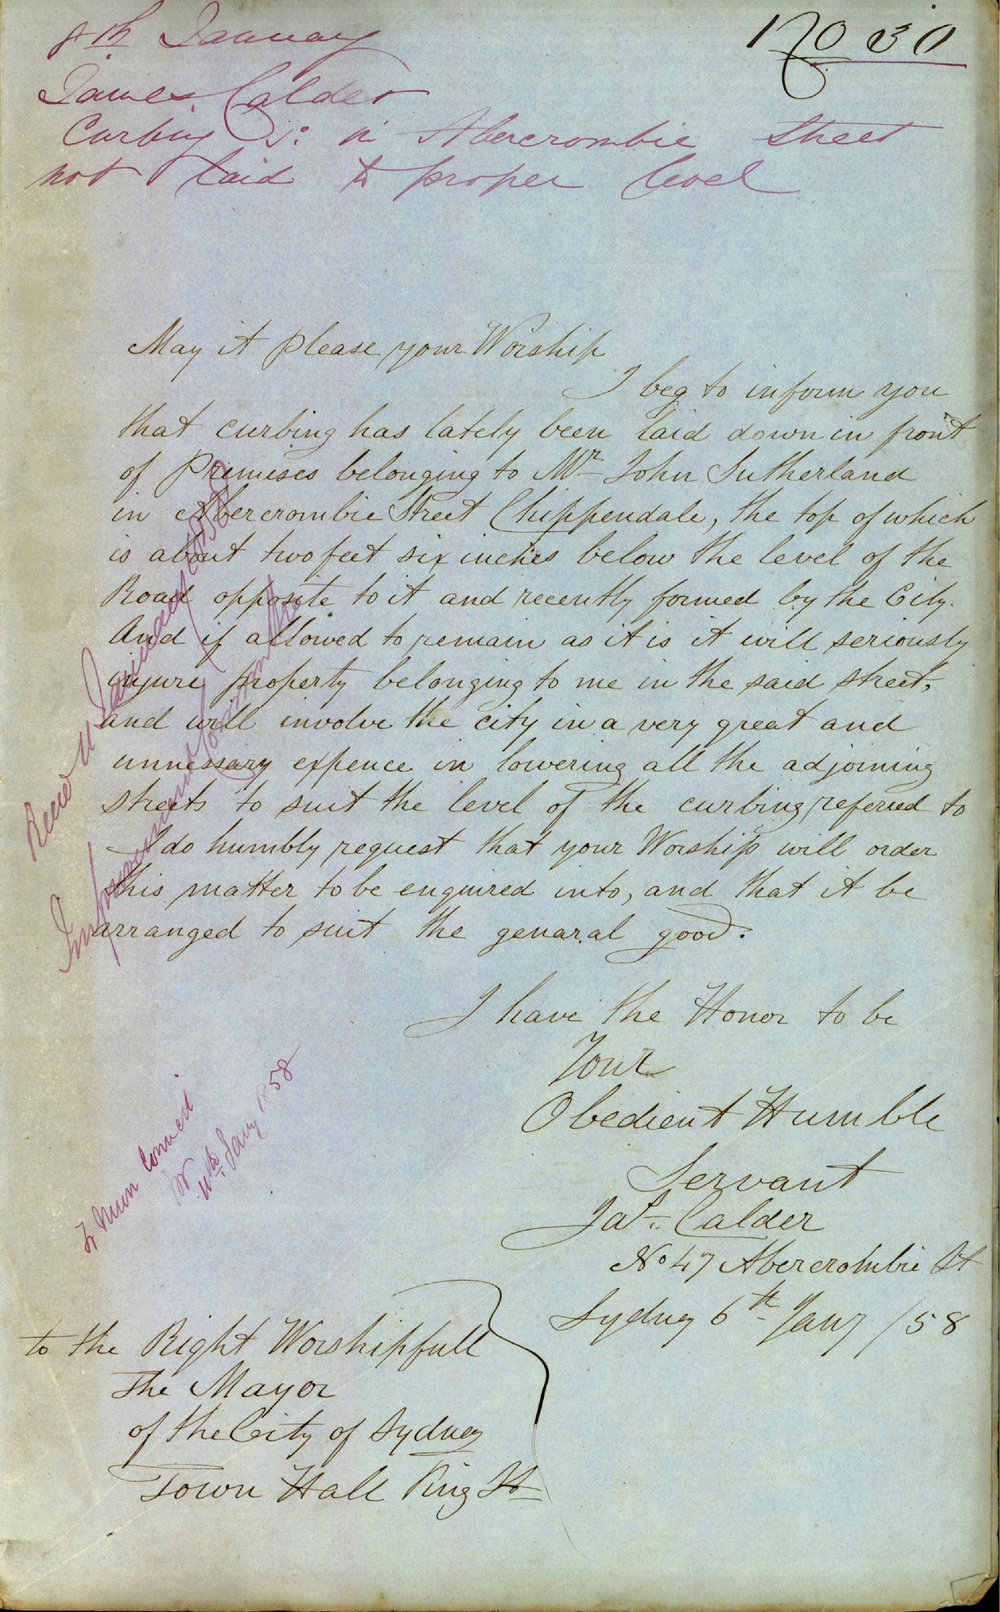 No 30
8th January
James Calder
Curbing &c in Abercrombie Street
not laid to proper level
May it please your Worship
I beg to inform you
that curbing has lately been laid down in front
of Premises belonging to Mr John Sutherland
in Abercrombie Street Chippendale, the top of which
is about two feet six inches below the level of the
Road opposite to it and recently formed by the City.
And if allowed to remain as it is it will seriously
injure property belonging to me in the said street,
and will involve the city in a very great and
unnessary expence in lowering all the adjoining
streets to suit the level of the curbing referred to
I do humbly request that your Worship will order
this matter to be enquired into, and that it be
arranged to suit the genaral good.
I have the Honor to be
Your
Obedient Humble
Servant
Jas. Calder
No 47 Abercrombie St
Sydney 6th Jany /58
to the Right Worshipfull
The Mayor
of the City of Sydney
Town Hall King St
Recd 11 January 1858
Improvement Committee
11th Jany 1858